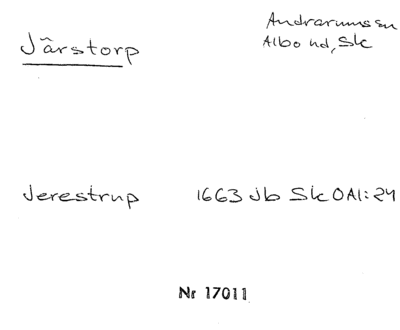 Järstorp
Andrarums sn
Albo hd, Sk
Jerestrup 1663 Jb Sk OAI:24
Nr 17011